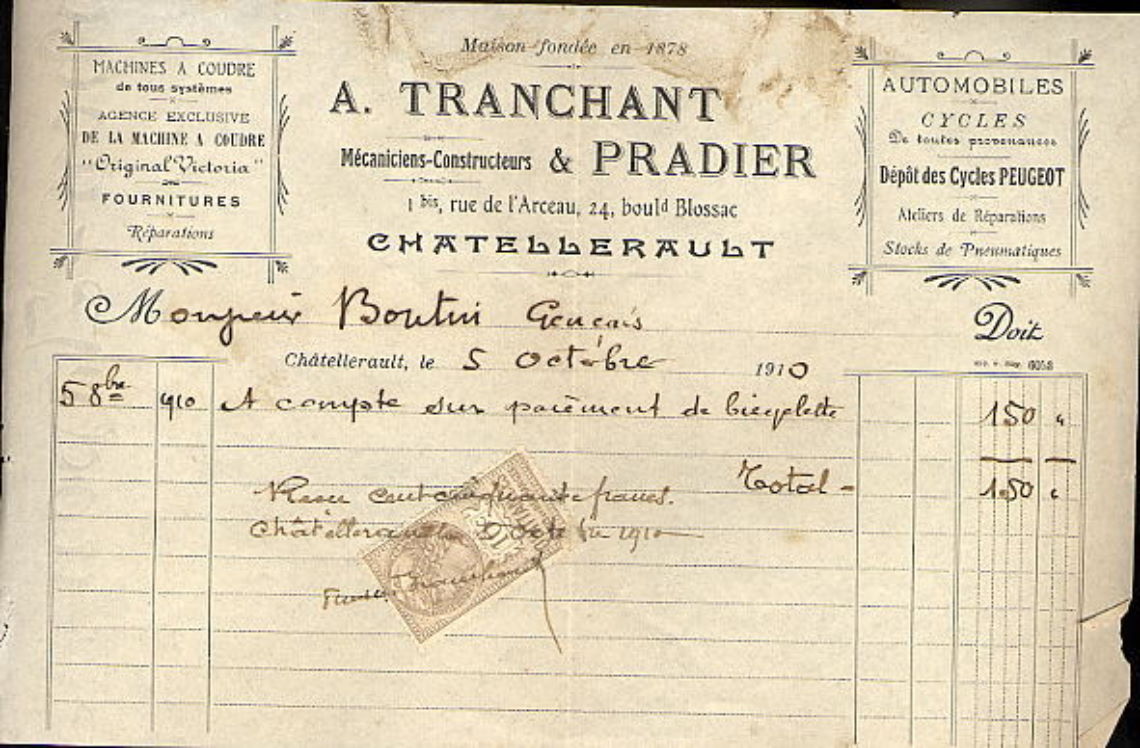 MACHINES A COUDRE
de tous systèmes
AGENCE EXCLUSIVE
DE LA MACHINE A COUDRE
"Original Victoria"
FOURNITURES
Réparations
Maison fondée en 1878
A. TRANCHANT
Mécaniciens-Constructeurs & PRADIER
1 bis, rue de l'Arceau, 24, bould Blossac
CHATELLERAULT
AUTOMOBILES
CYCLES
De toutes provenances
Dépôt des Cycles PEUGEOT
Ateliers de Réparations
Stocks de Pneumatiques
Monsieur Boutin Gençais Doit
Châtellerault, le 5 Octobre 1910
5 8bre 910 A compte sur paiement de bicyclette 150 "
Total - 150 "
cent cinquante francs.
Châtellerault 5 Octobre 1910
Tranchant